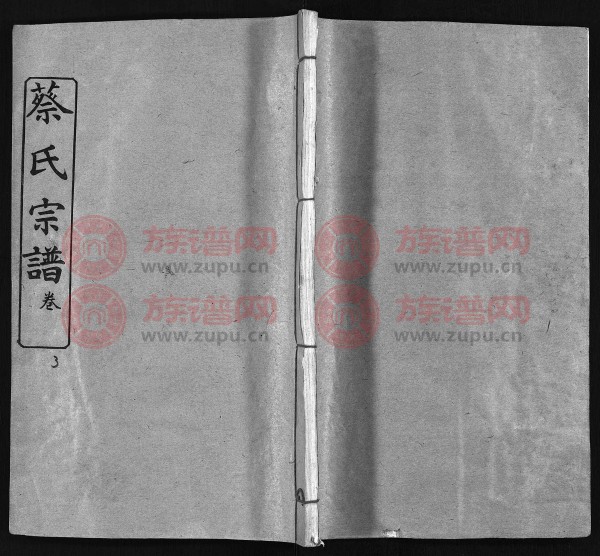 蔡氏宗譜
卷
3
族谱网
www.zupu.cn
族谱网
www.zupu.cn
族谱网
www.zupu.cn
族谱网
www.zupu.cn